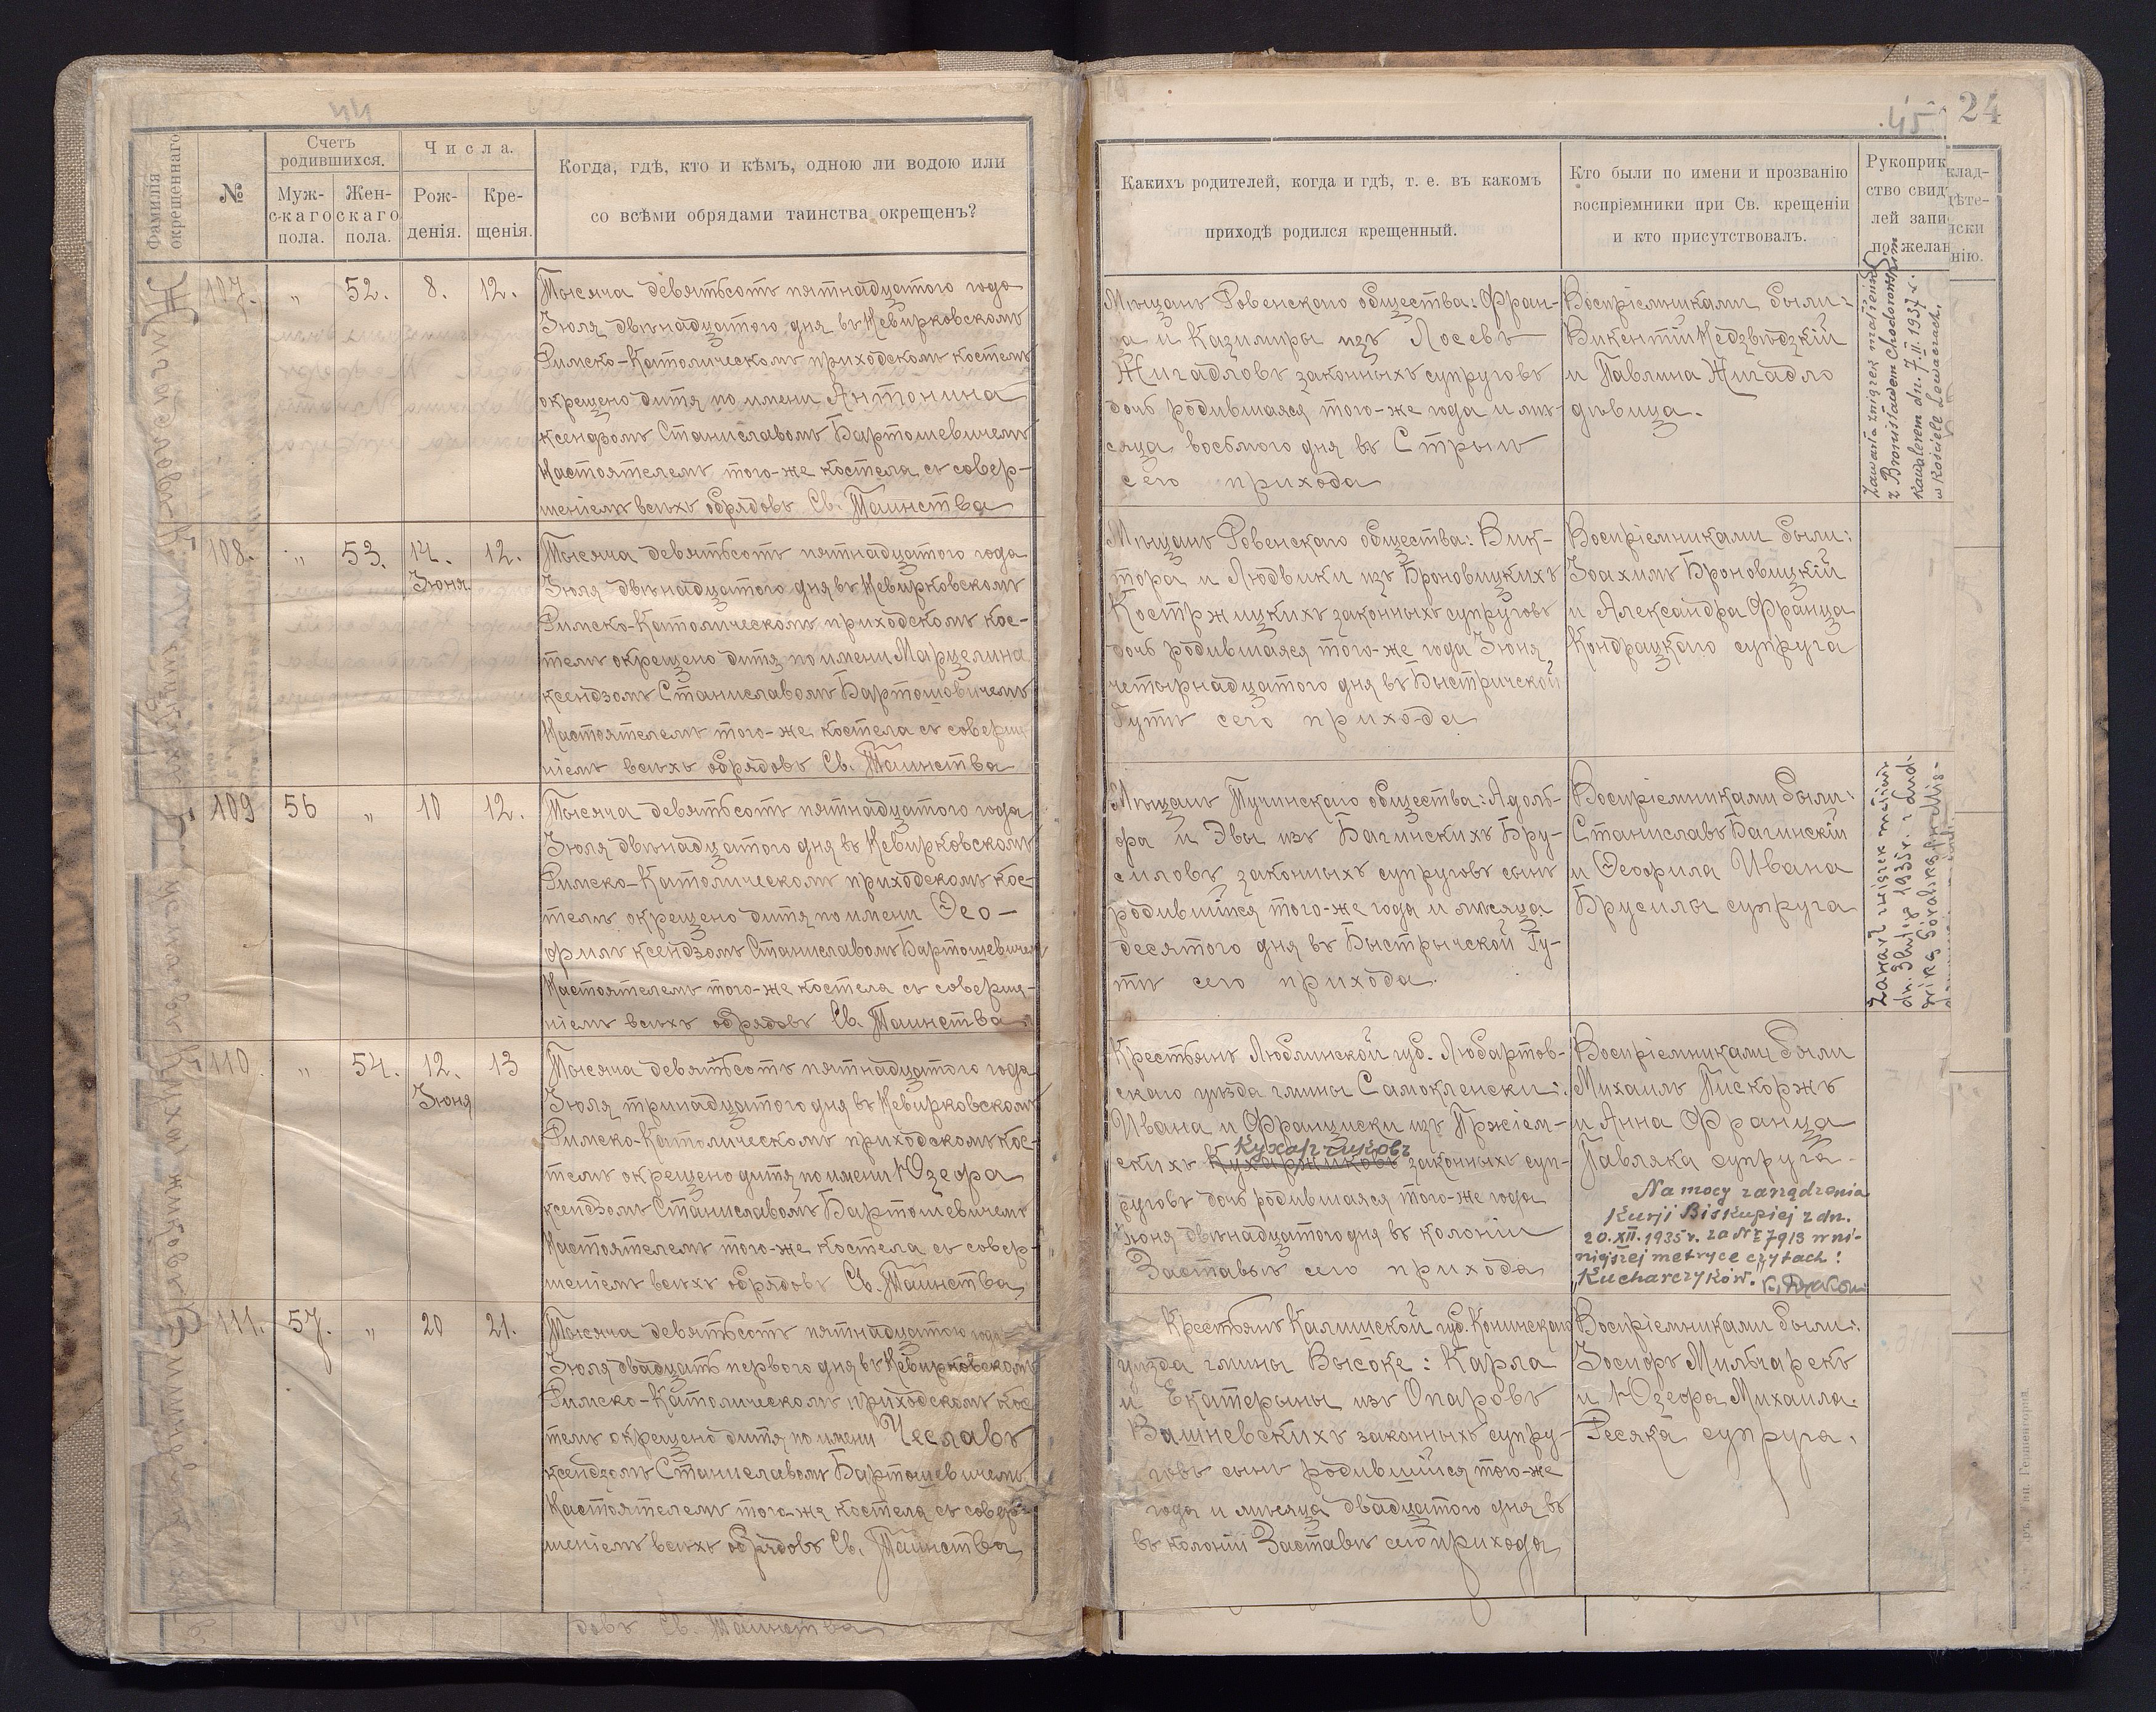 44
Фамилія окрещеннаго
№
Счетъ родившихся.
Муж-
скаго
пола.
Жен-
скаго
пола.
Числа.
Рож-
денія.
Кре-
щенія.
Когда, гдѣ, кто и кѣмъ, одною ли водою или
со всѣми обрядами таинства окрещенъ?
107. „ 52. 8. 12.
Тысяча девятьсотъ пятнадцатого года
Іюля двѣнадцатого дня въ Невирковскомъ
Римско-Католическомъ приходскомъ костелѣ
окрещено дитя по имени Антонина
ксендзомъ Станиславомъ Бартошевичемъ
Настоятелемъ того-же костела съ совер-
шеніемъ всѣхъ обрядовъ Св. Таинства
108. „ 53. 14. Іюня 12.
Тысяча девятьсотъ пятнадцатого года
Іюля двѣнадцатого дня въ Невирковскомъ
Римско-Католическомъ приходскомъ кос-
телѣ окрещено дитя по имени Марцелина
ксендзомъ Станиславомъ Бартошевичемъ
Настоятелемъ того-же костела съ соверше
ніемъ всѣхъ обрядовъ Св. Таинства
109 56 „ 10 12.
Тысяча девятьсотъ пятнадцатого года
Іюля двѣнадцатого дня въ Невирковскомъ
Римско-Католическомъ приходскомъ кос-
телѣ окрещено дитя по имени Ѳео-
филъ ксендзомъ Станиславомъ Бартошевичем
Настоятелемъ того-же костела съ соверше-
ніемъ всѣхъ обрядовъ Св. Таинства
110. „ 54. 12. Іюня 13
Тысяча девятьсотъ пятнадцатого года
Іюля тринадцатого дня въ Невирковскомъ
Римско-Католическомъ приходскомъ кос-
телѣ окрещено дитя по имени Юзефа
ксендзомъ Станиславомъ Бартошевичемъ
Настоятелемъ того-же костела съ совер-
шеніемъ всѣхъ обрядовъ Св. Таинства
111. 57. „ 20 21.
Тысяча девятьсотъ пятнадцатого года
Іюля двадцать первого дня въ Невирковскомъ
Римско-Католическомъ приходскомъ кос
телѣ окрещено дитя по имени Чеславъ
ксендзомъ Станиславомъ Бартошевичемъ
Настоятелемъ того-же костела съ совер-
шеніемъ всѣхъ обрядовъ Св. Таинства
довъ Св. Таинства
45
24
Какихъ родителей, когда и гдѣ, т. е. въ какомъ
приходѣ родился крещенный.
Кто были по имени и прозванію
воспріемники при Св. крещеніи
и кто присутствовалъ.
Рукоприк
ство свид
лей запи
по желан
клад-
ѣте-
иски
нію.
Мѣщанъ Ровенскаго общества: Фран-
а и Казимиры изъ Лосевъ
Жигадловъ законныхъ супруговъ
дочь родившаяся того-же года и мѣ-
сяца восьмого дня въ Стрыль
сего прихода
Воспріемниками были:
Викентій Недзвѣдзкій
и Павлина Жигадло
дѣвица.
Zawarła związek małżeński
z Bronisławem Chodorowskim
kawalerem dn. 7.II.1937 r.
w Kościele Lewaczach.
Мѣщанъ Ровенскаго общества: Вик-
тора и Людвики изъ Броновицкихъ
Костржицкихъ законныхъ супруговъ
дочь родившаяся того-же года Іюня
четырнадцатого дня въ Быстричской
Гутѣ сего прихода
Воспріемниками были:
Іоахимъ Броновицкій
и Александра Франца
Кондрацкаго супруга
Мѣщанъ Тучинскаго общества: Адоль-
фа и Эвы изъ Багинскихъ Бру-
силовъ законныхъ супруговъ сынъ
родившійся того-же года и мѣсяца
десятого дня въ Быстрычской Гу-
тѣ сего прихода.
Воспріемниками были:
Станиславъ Багинскій
и Ѳеофила Ивана
Брусилы супруга
Zawarł związek małżeń
dn. 3 lutego 1935 r. z Lud-
wiką Góralską
Крестьянъ Люблинской губ. Любартов-
скаго уѣзда гмины Самокленски:
Ивана и Франциски изъ Пржіем-
Кухарчиковъ
скихъ Кухаржиковъ законныхъ суп-
руговъ дочь родившаяся того-же года
Іюня двѣнадцатого дня въ колоніи
Заставье сего прихода
Воспріемниками были
Михаилъ Пискоржъ
и Анна Франца
Павляка супруга.
Na mocy zarządzenia
Kurji Biskupiej z dn.
20.XII.1935 r. za № 7913 w ni-
niejszej metryce czytać:
„Kucharczyków".
Крестьянъ Калишской губ. Конинскаго
уѣзда гмины Высоке: Карла
и Екатерыны изъ Опаровъ
Вашневскихъ законныхъ супру-
говъ сынъ родившійся того-же
года и мѣсяца двадцатого дня въ
въ колоніи Заставѣ сего прихода
Воспріемниками были:
Іосифъ Мильчарекъ
и Юзефа Михаила
Ресяка супруга.